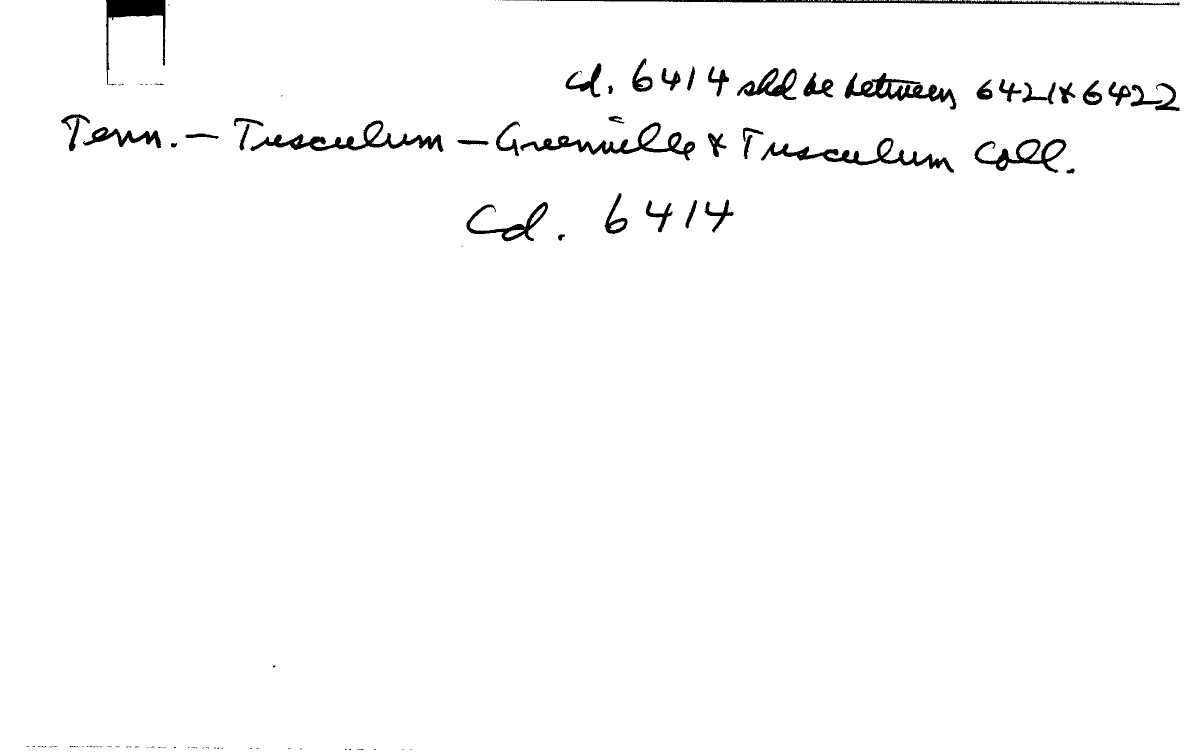 Cd. 6414 shd be between 6421 & 6422
Tenn. — Tusculum — Greenville & Tusculum Coll.
Cd. 6414